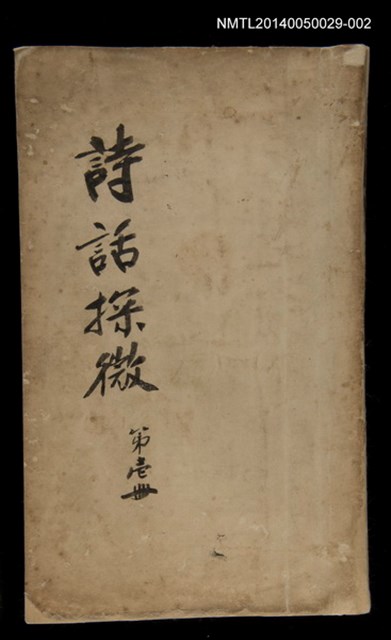 NMTL20140050029-002
詩話探微
第壱冊